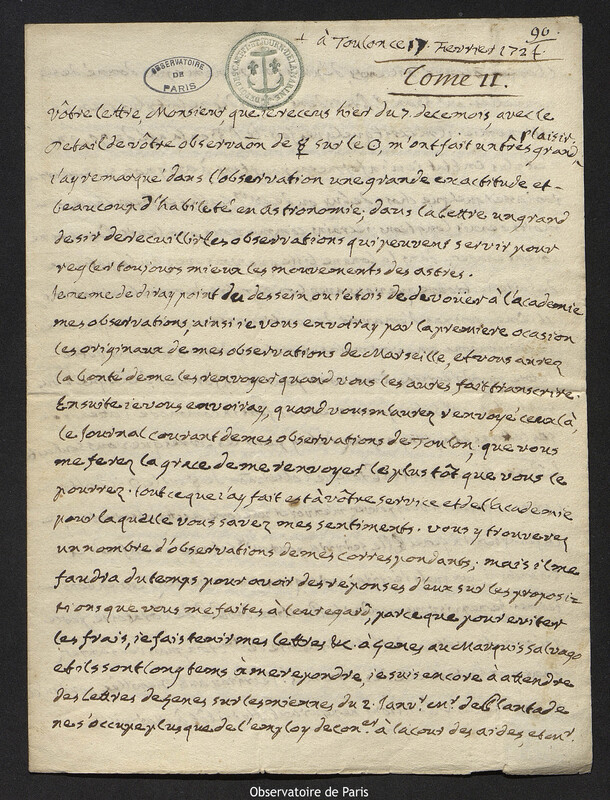 90
+ à Toulon ce 17 Fevrier 1724.
Tome II.
OBSERVATOIRE DE PARIS
vôtre lettre, Monsieur que ie recens hier du 7. de ce mois, avec le
Detail de vôtre observaõn de ☿ sur le ☉, m'ont fait un trés grand plaisir
i'ay remarqué dans l'observation une grande exactitude et
beaucoup d'habileté en Astronomie, dans la lettre un grand
desir de recuillir les observations qui peuvent servir pour
regler toujours mieux les mouvements des astres.
ie ne me dediray point du dessein ou i'etois de devoüer à l'academie
mes observations, ainsi ie vous envoiray par la premiere ocasion
les originaux de mes observations de Marseille, et vous aurez
la bonté de me les renvoyer quand vous les aurés fait transcrire.
Ensuite ie vous envoiray, quand vous m'aurez renvoyé ceux là,
le Journal courant de mes observations de Toulon, que vous
me ferez la grace de me renvoyer le plus tôt que vous le
pourrez. tout ce que i'ay fait est à vôtre service et de l'academie
pour la quelle vous savez mes sentiments. vous y trouverez
un nombre d'observations de mes correspondants, mais il me
faudra du temps pour avoir des réponses d'eux sur les proposi-
tions que vous me faites à leur egard, parce que pour eviter
les frais, ie fais tenir mes lettres &c. à Genes au Marquis Salvago
et ils sont long tems à me repondre, ie suis encore à attendre
des lettres de Genes sur les miennes du 2. Janvr. mr. de Plantade
ne s'occupe plus que de l'employ de conr. à la cour des aides, et mr.
Observatoire de Paris